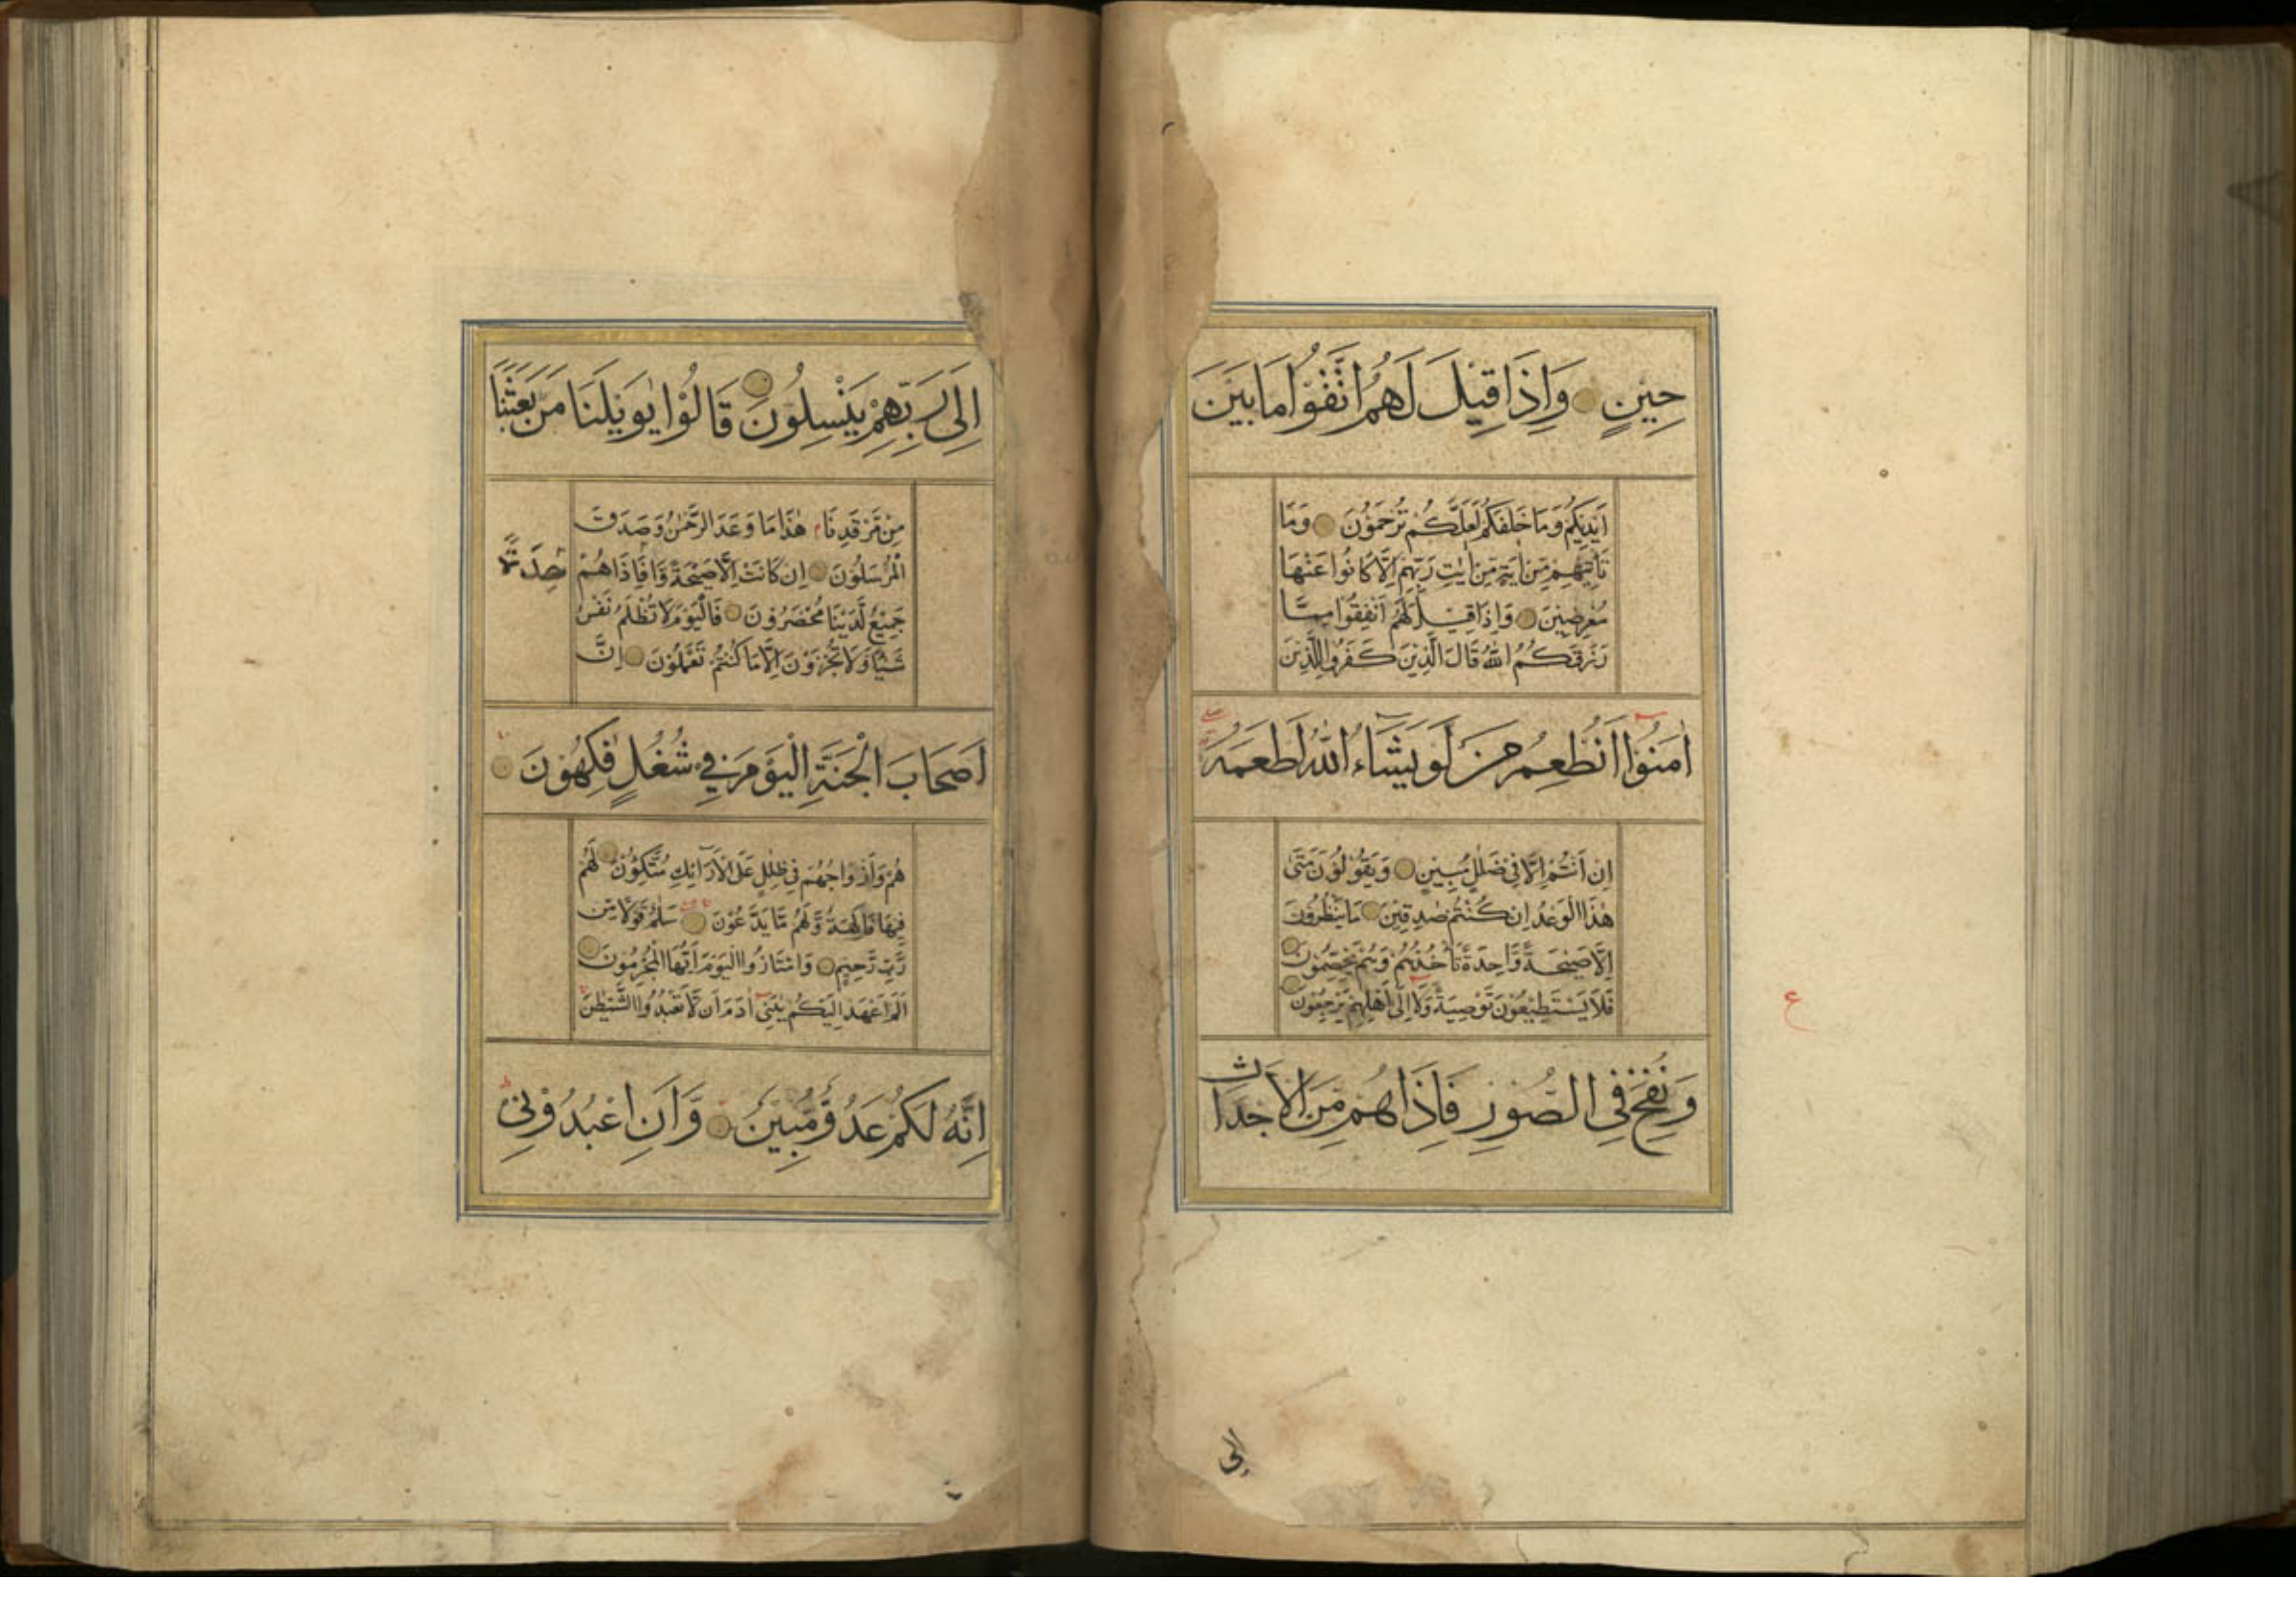 حِيْنٍ وَاِذَا قِيْلَ لَهُمُ اتَّقُوْا مَا بَيْنَ
اَيْدِيْكُمْ وَمَا خَلْفَكُمْ لَعَلَّكُمْ تُرْحَمُوْنَ وَمَا
تَاْتِيْهِمْ مِّنْ اٰيَةٍ مِّنْ اٰيٰتِ رَبِّهِمْ اِلَّا كَانُوْا عَنْهَا
مُعْرِضِيْنَ وَاِذَا قِيْلَ لَهُمْ اَنْفِقُوْا مِمَّا
رَزَقَكُمُ اللّٰهُ قَالَ الَّذِيْنَ كَفَرُوْا لِلَّذِيْنَ
اٰمَنُوْا اَنُطْعِمُ مَنْ لَّوْ يَشَاءُ اللّٰهُ اَطْعَمَهُ
اِنْ اَنْتُمْ اِلَّا فِيْ ضَلٰلٍ مُّبِيْنٍ وَيَقُوْلُوْنَ مَتٰى
هٰذَا الْوَعْدُ اِنْ كُنْتُمْ صٰدِقِيْنَ مَا يَنْظُرُوْنَ
اِلَّا صَيْحَةً وَّاحِدَةً تَاْخُذُهُمْ وَهُمْ يَخِصِّمُوْنَ
فَلَا يَسْتَطِيْعُوْنَ تَوْصِيَةً وَّلَا اِلٰى اَهْلِهِمْ يَرْجِعُوْنَ
وَنُفِخَ فِي الصُّوْرِ فَاِذَا هُمْ مِّنَ الْاَجْدَاثِ
ع
اِلٰى
اِلٰى رَبِّهِمْ يَنْسِلُوْنَ قَالُوْا يٰوَيْلَنَا مَنْ بَعَثَنَا
مِنْ مَّرْقَدِنَا هٰذَا مَا وَعَدَ الرَّحْمٰنُ وَصَدَقَ
الْمُرْسَلُوْنَ اِنْ كَانَتْ اِلَّا صَيْحَةً وَّاحِدَةً فَاِذَا هُمْ
جَمِيْعٌ لَّدَيْنَا مُحْضَرُوْنَ فَالْيَوْمَ لَا تُظْلَمُ نَفْسٌ
شَيْئًا وَّلَا تُجْزَوْنَ اِلَّا مَا كُنْتُمْ تَعْمَلُوْنَ اِنَّ
اَصْحَابَ الْجَنَّةِ الْيَوْمَ فِيْ شُغُلٍ فٰكِهُوْنَ
هُمْ وَاَزْوَاجُهُمْ فِيْ ظِلٰلٍ عَلَى الْاَرَآئِكِ مُتَّكِئُوْنَ لَهُمْ
فِيْهَا فَاكِهَةٌ وَّلَهُمْ مَّا يَدَّعُوْنَ سَلٰمٌ قَوْلًا مِّنْ
رَّبٍّ رَّحِيْمٍ وَامْتَازُوا الْيَوْمَ اَيُّهَا الْمُجْرِمُوْنَ
اَلَمْ اَعْهَدْ اِلَيْكُمْ يٰبَنِيْ اٰدَمَ اَنْ لَّا تَعْبُدُوا الشَّيْطٰنَ
اِنَّهُ لَكُمْ عَدُوٌّ مُّبِيْنٌ وَّاَنِ اعْبُدُوْنِيْ